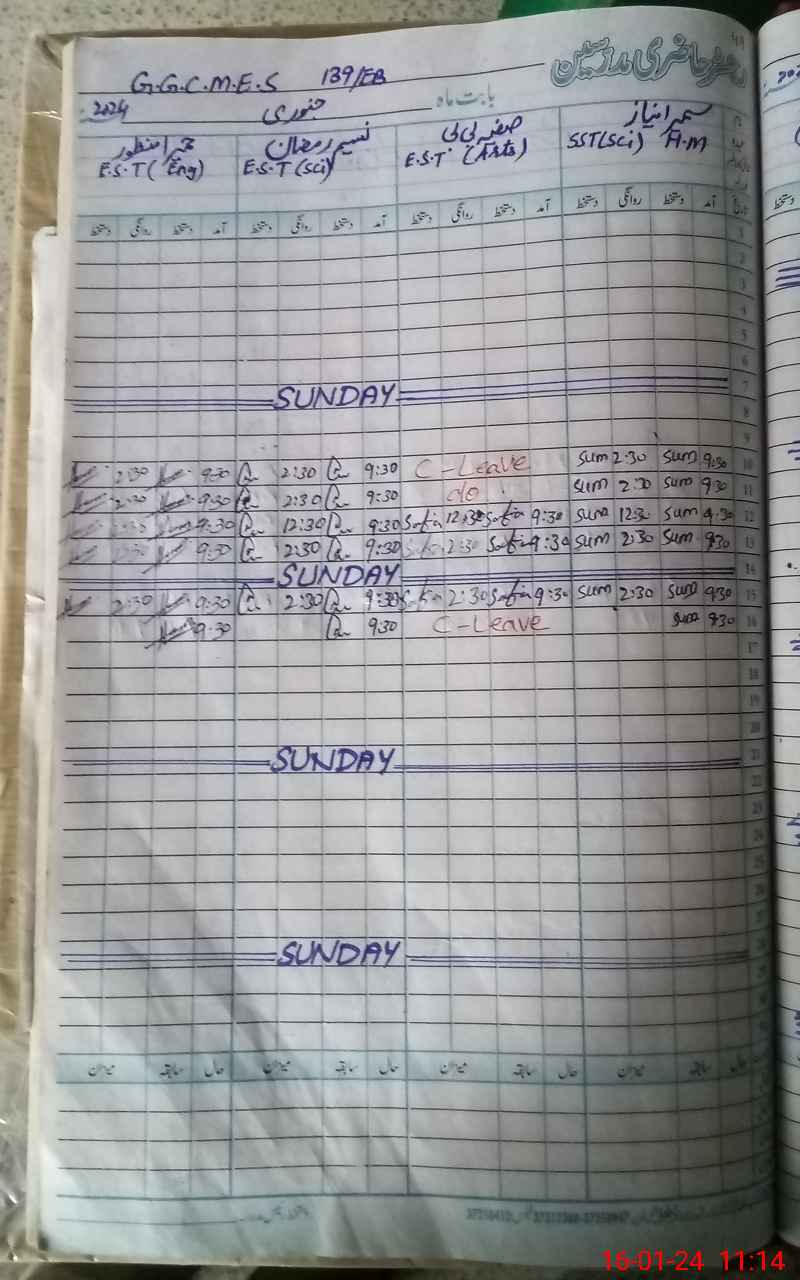 رجسٹر حاضری مدرسین
G.G.C.M.E.S 139/EB
بابت ماہ جنوری 2024
سمیرا نیاز صفیہ بی بی نسیم رمضان حمیرا منظور
SST(Sci) H.M E.S.T (Arts) E.S.T (Sci) E.S.T (Eng)
تاریخ آمد دستخط روانگی دستخط آمد دستخط روانگی دستخط آمد دستخط روانگی دستخط آمد دستخط روانگی دستخط
1
2
3
4
5
6
SUNDAY 7
8
9
2:30 9:30 2:30 9:30 C-Leave Sum 2:30 Sum 9:30 10
2:30 9:30 2:30 9:30 do Sum 2:30 Sum 9:30 11
9:30 12:30 9:30 Safia 12:30 Safia 9:30 Sum 12:30 Sum 9:30 12
9:30 2:30 9:30 Safia 2:30 Safia 9:30 Sum 2:30 Sum 9:30 13
SUNDAY 14
2:30 9:30 2:30 9:30 Safia 2:30 Safia 9:30 Sum 2:30 Sum 9:30 15
9:30 9:30 C-Leave Sum 9:30 16
17
18
19
20
SUNDAY 21
22
23
24
25
26
27
SUNDAY
حال سابقہ میزان حال سابقہ میزان حال سابقہ میزان حال سابقہ میزان
16-01-24 11:14